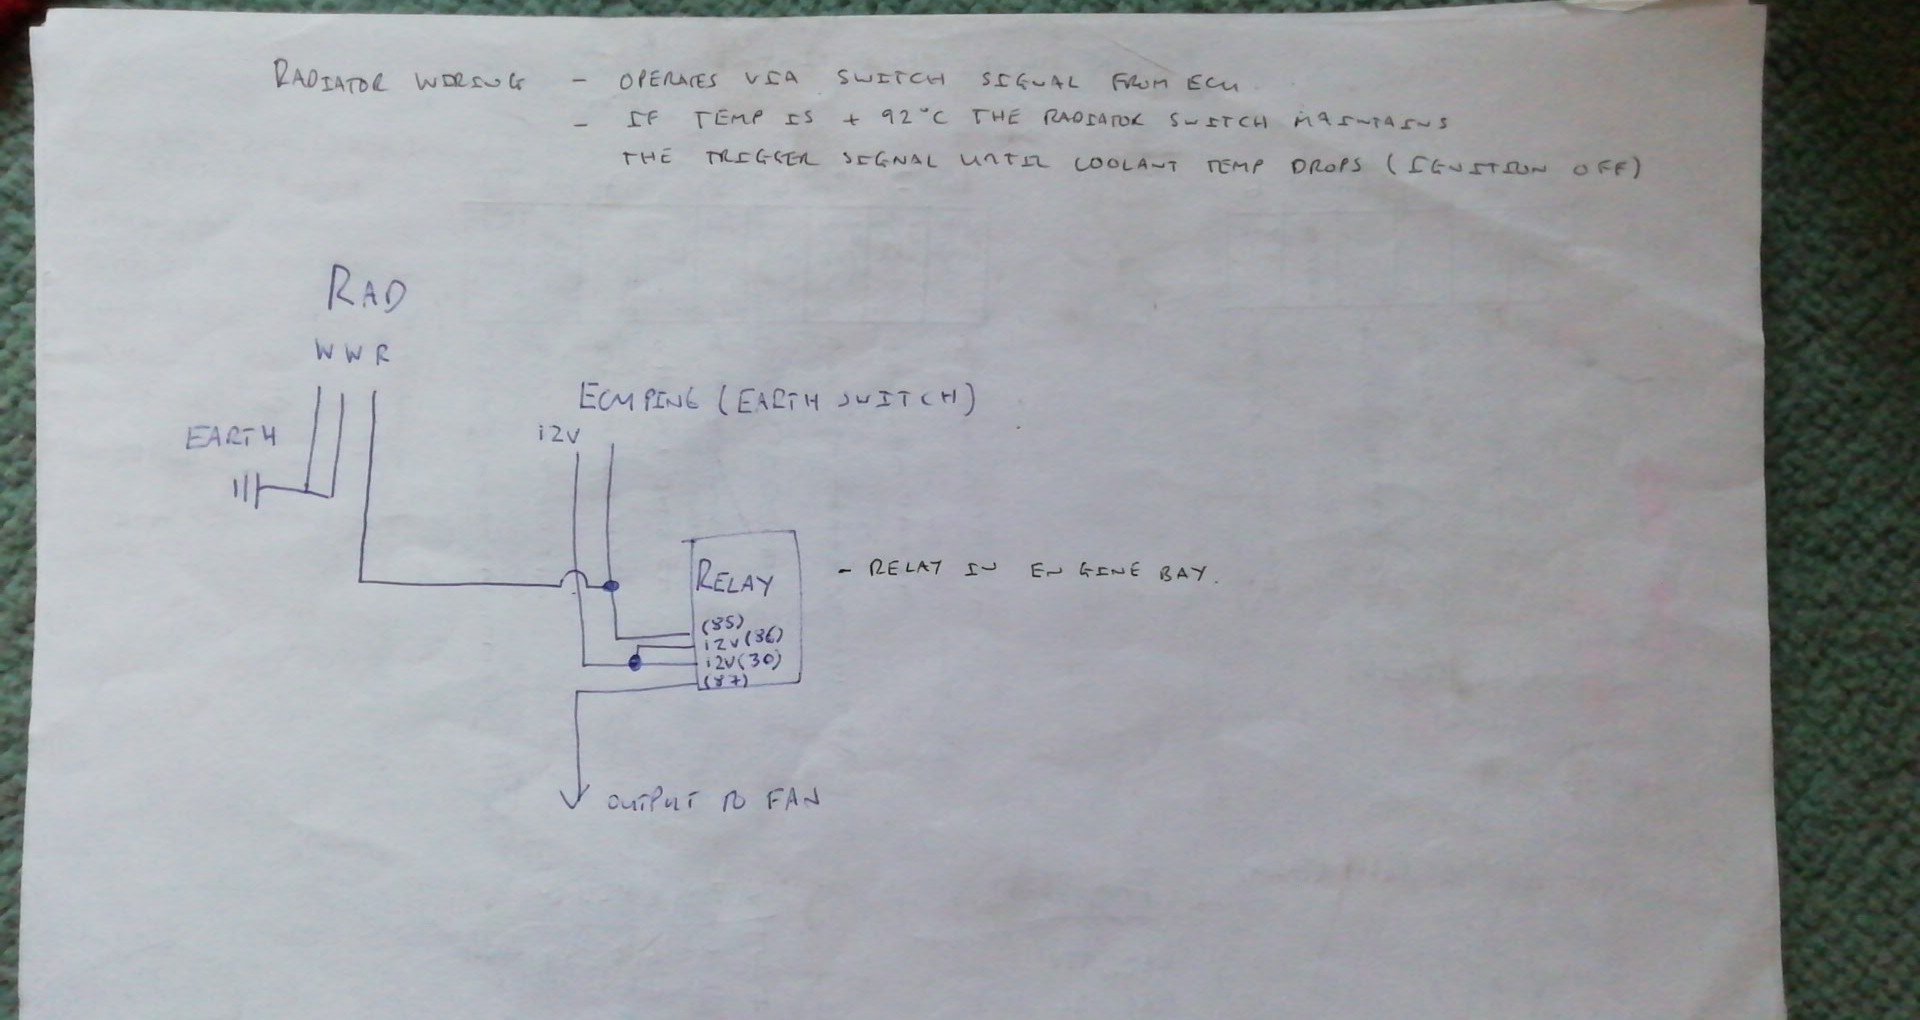 RADIATOR WIRING - OPERATES VIA SWITCH SIGNAL FROM ECU.
- IF TEMP IS + 92°C THE RADIATOR SWITCH MAINTAINS
THE TRIGGER SIGNAL UNTIL COOLANT TEMP DROPS (IGNITION OFF)
RAD
W W R
EARTH
ECU PING (EARTH SWITCH)
12V
RELAY
(85)
12V (86)
12V (30)
(87)
- RELAY IN ENGINE BAY.
OUTPUT TO FAN